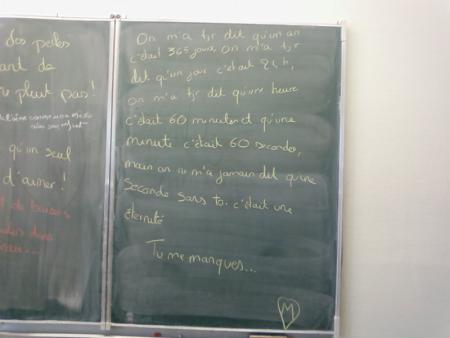 des perles
ant de
e pleut pas!
qu'un seul
d'aimer!
On m'a tjr dit qu'un an
c'était 365 jours, on m'a tjr
dit qu'un jour c'était 24h,
on m'a tjr dit qu'une heure
c'était 60 minutes et qu'une
minute c'était 60 secondes,
mais on ne m'a jamais dit qu'une
seconde sans toi c'était une
éternité
Tu me manques...
M